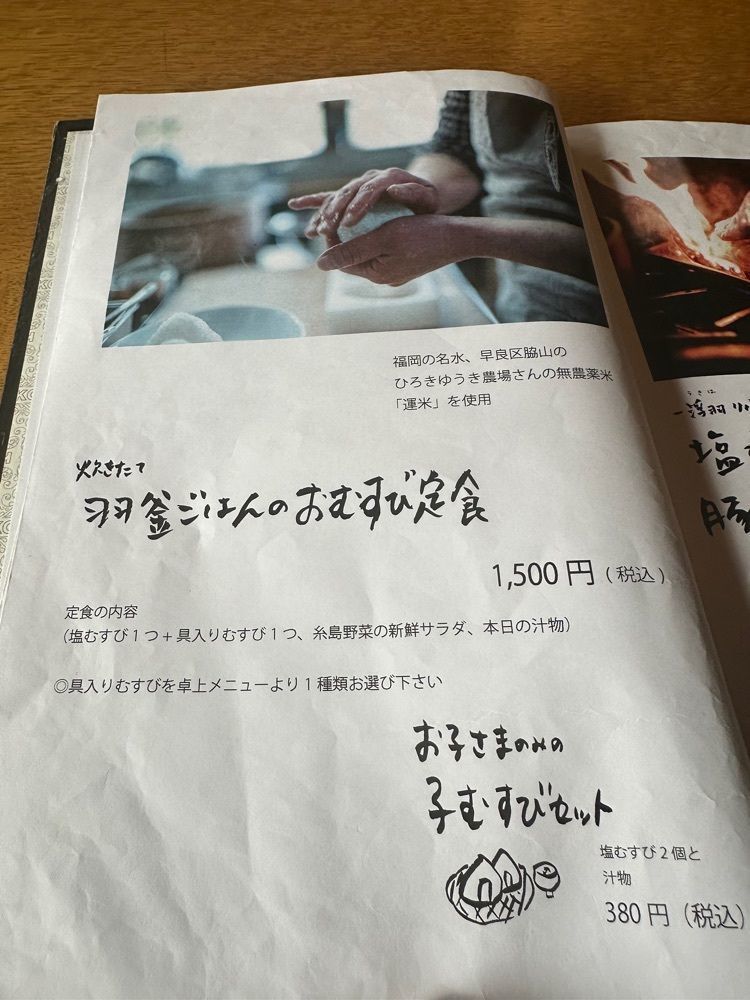 福岡の名水、早良区脇山の
ひろきゆうき農場さんの無農薬米
「運米」を使用
炊きたて
羽釜ごはんのおむすび定食
1,500 円 ( 税込 )
定食の内容
(塩むすび 1 つ + 具入りむすび 1 つ、糸島野菜の新鮮サラダ、本日の汁物)
◎具入りむすびを卓上メニューより 1 種類お選び下さい
お子さまのみの
子むすびセット
塩むすび 2 個と
汁物
380 円 (税込)
うきは
浮羽
塩
豚